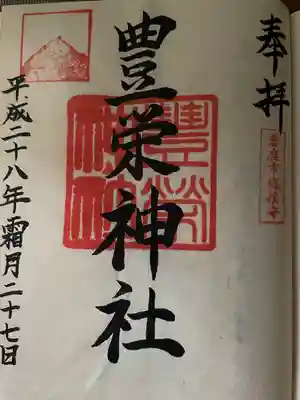 奉拝
豊栄神社
平成二十八年霜月二十七日